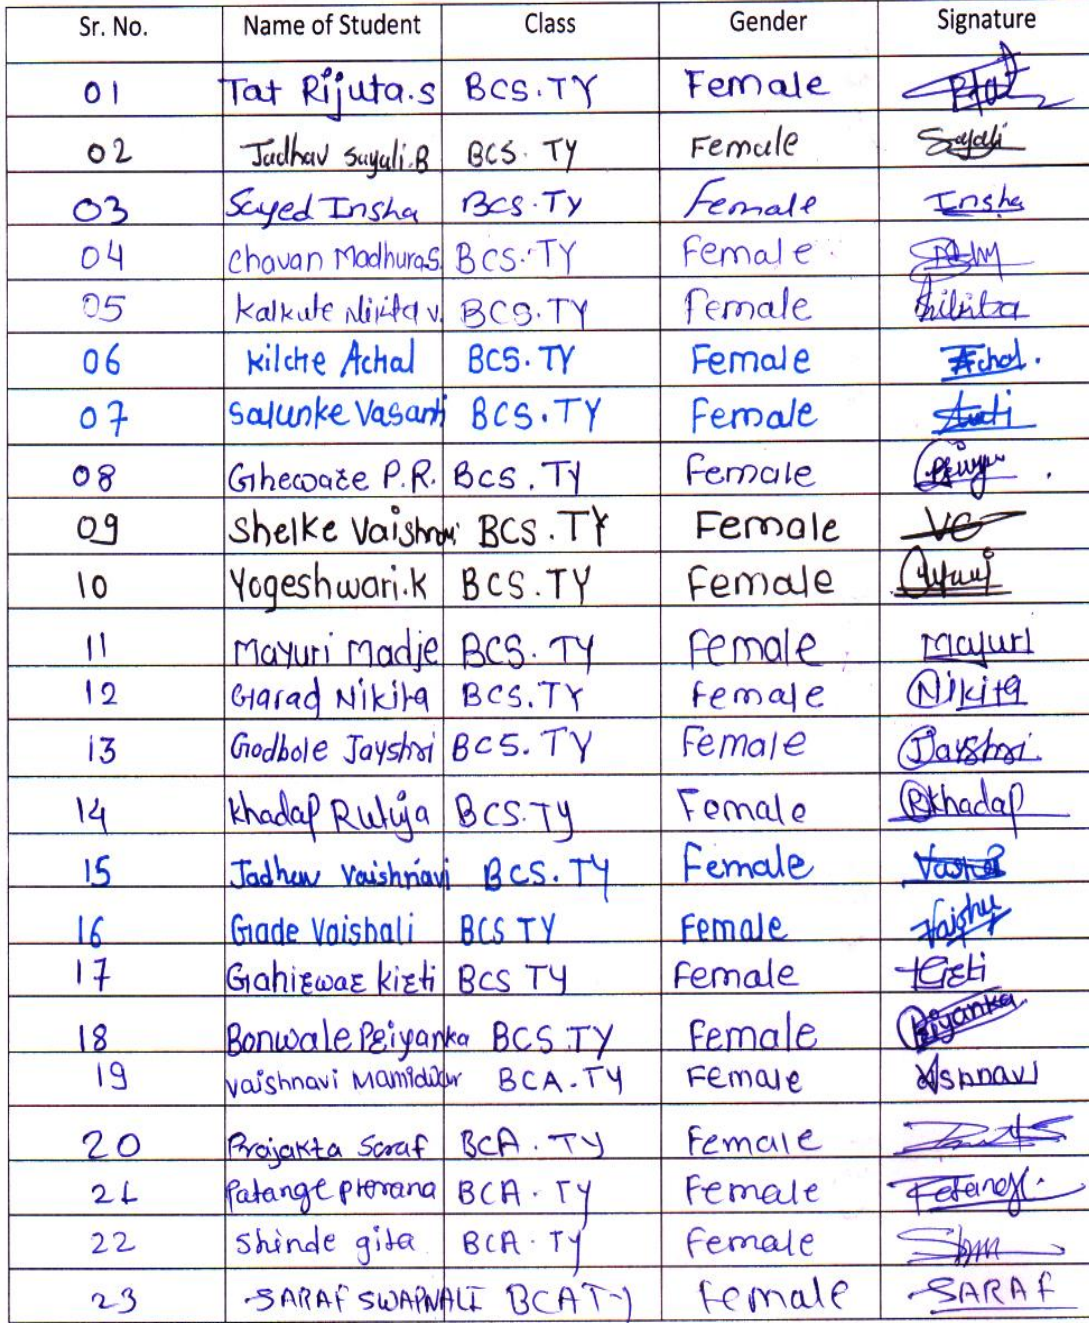 Sr. No. Name of Student Class Gender Signature
01 Tat Rijuta.s BCS.TY Female
02 Jadhav Sayali.B BCS. TY Female Sayali
03 Sayed Insha BCS.TY Female Insha
04 Chavan Madhura.S. BCS.TY Female
05 Kalkute Nikita v. BCS.TY Female Nikita
06 Kilche Achal BCS.TY Female Achal.
07 Salunke Vasanti BCS.TY Female
08 Gheware P.R. BCS.TY Female
09 Shelke Vaishnavi BCS.TY Female
10 Yogeshwari.K BCS.TY Female
11 Mayuri Madje BCS.TY Female Mayuri
12 Garad Nikita BCS.TY Female Nikita
13 Godbole Jayshri BCS.TY Female Jayshri
14 Khadap Rutuja BCS.TY Female RKhadap
15 Jadhav Vaishnavi BCS.TY Female
16 Gade Vaishali BCS TY Female Vaishu
17 Gahirwar Kirti BCS TY Female Kirti
18 Bonwale Priyanka BCS.TY Female Priyanka
19 Vaishnavi BCA.TY Female
20 Prajakta Saraf BCA.TY Female
21 Patange prerana BCA.TY Female
22 Shinde gita BCA.TY Female
23 SARAF SWAPNALI BCA TY Female SARAF